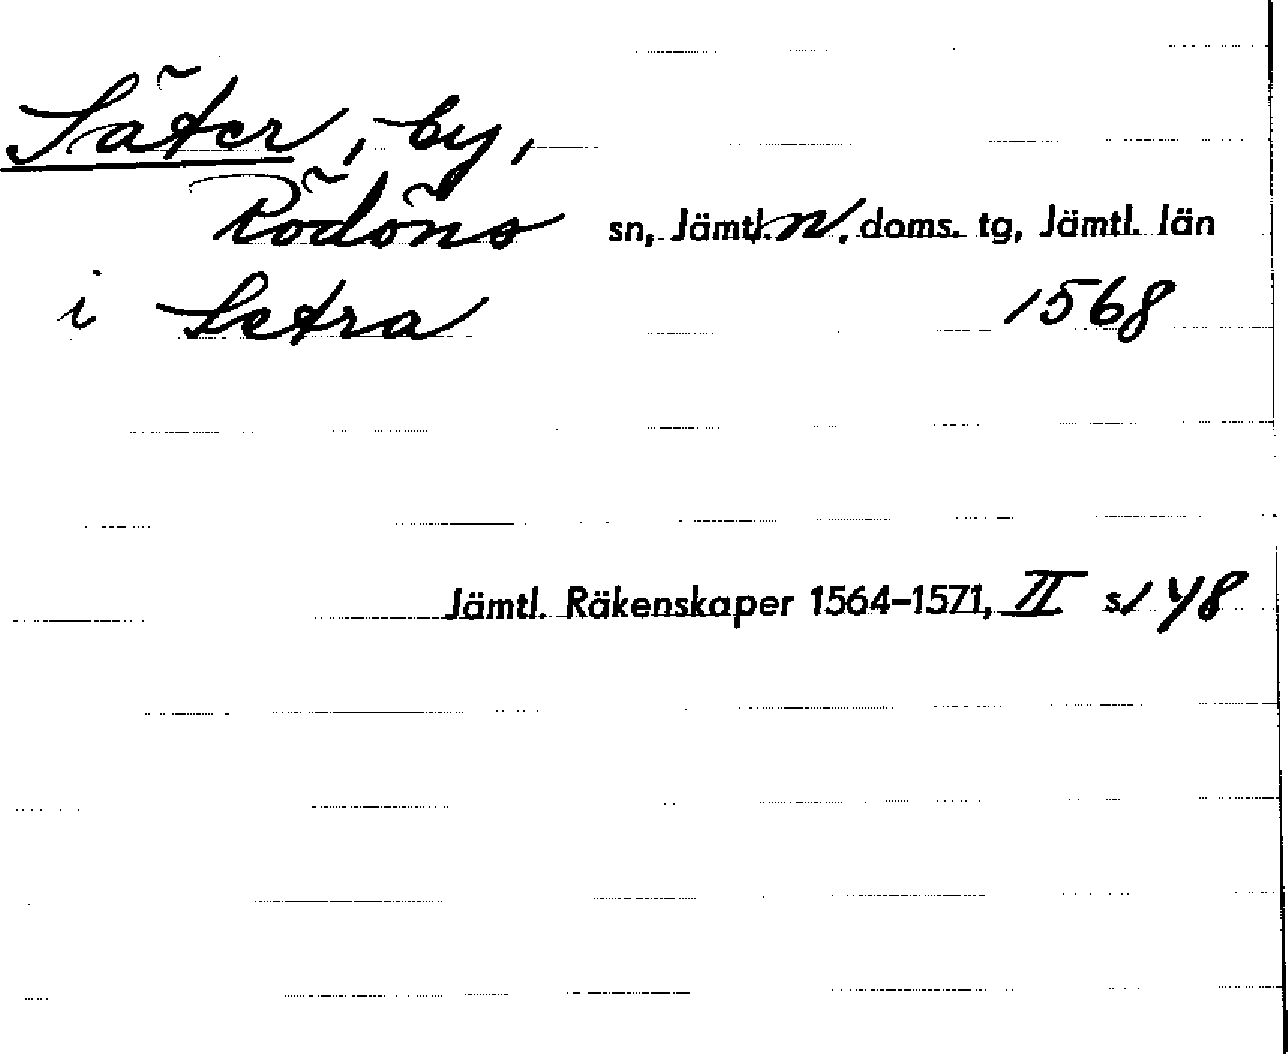 Säter, by,
Rödöns sn, Jämtl. N. doms. tg, Jämtl. län
i Setra 1568
Jämtl. Räkenskaper 1564-1571, II s. 148